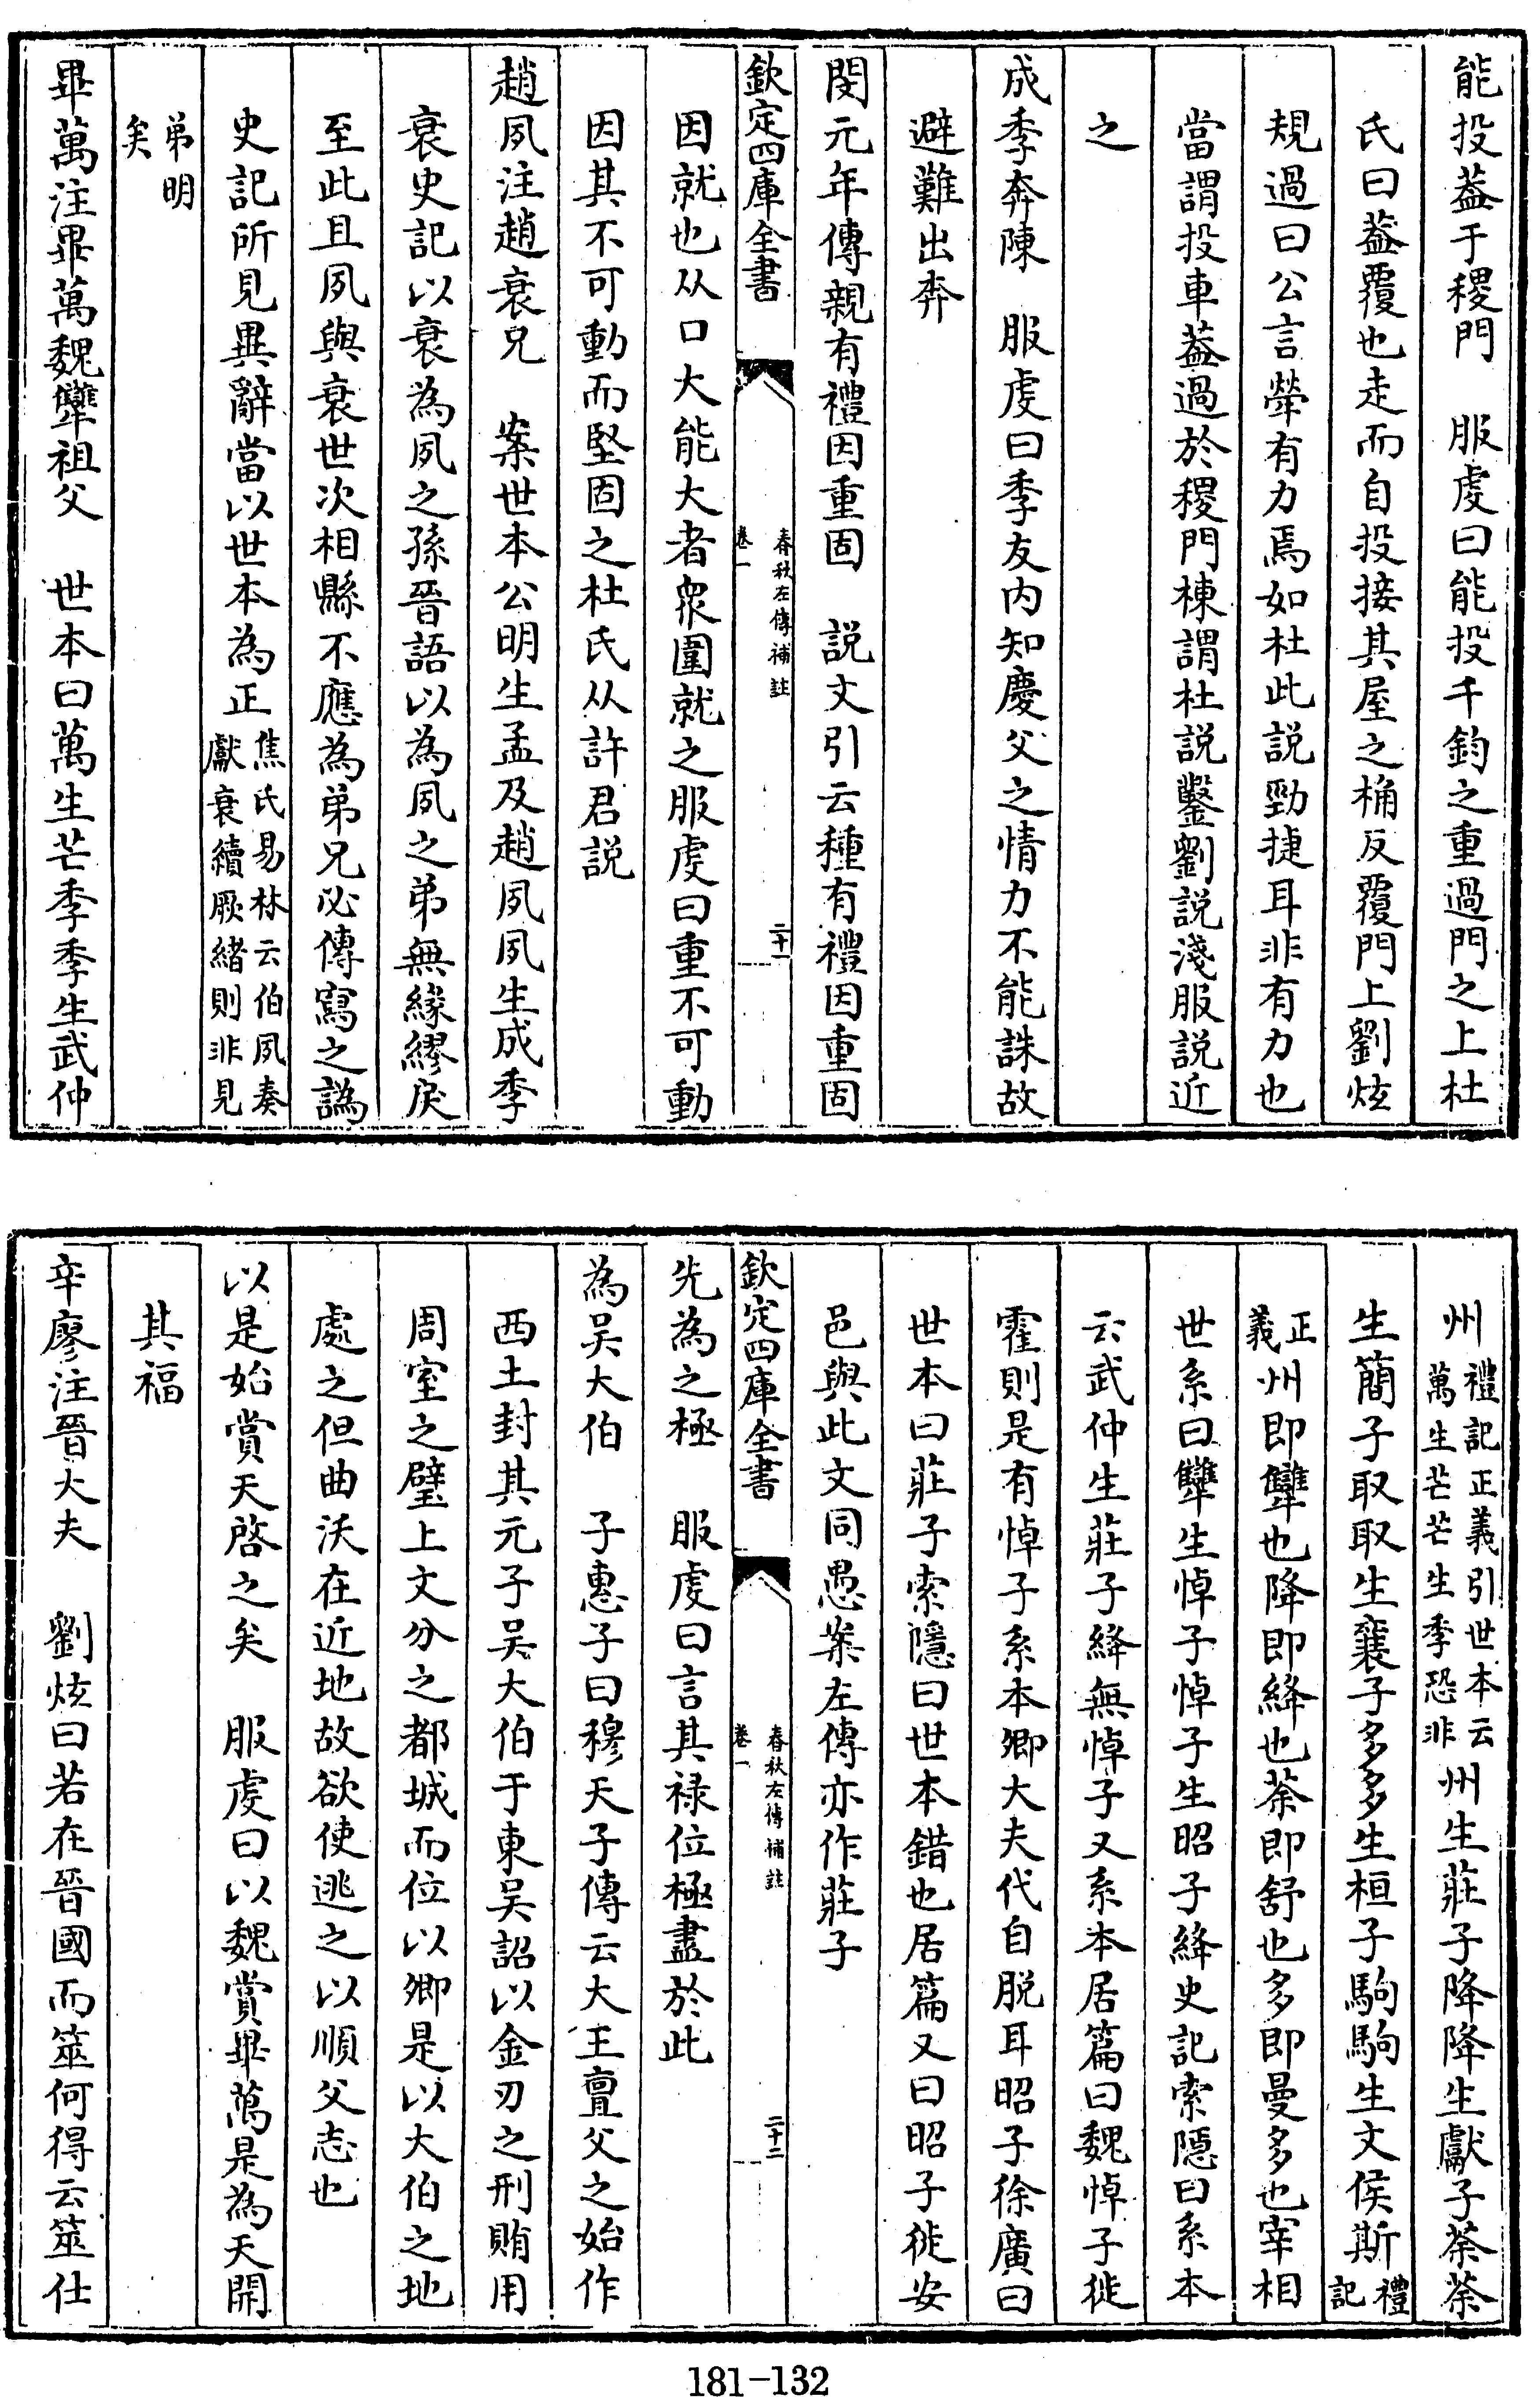 能投葢于稷門　服虔曰能投千鈞之重過門之上杜
氏曰葢覆也走而自投接其屋之桷反覆門上劉炫
規過曰公言犖有力焉如杜此説勁捷耳非有力也
當謂投車葢過於稷門棟謂杜説鑿劉説淺服説近
之
成季奔陳　服虔曰季友内知慶父之情力不能誅故
避難出奔
閔元年傳親有禮因重固　説文引云種有禮因重固
欽定四庫全書
春秋左傳補註
卷一
二十一
因就也从口大能大者衆圍就之服虔曰重不可動
因其不可動而堅固之杜氏从許君説
趙夙注趙衰兄　案世本公明生孟及趙夙夙生成季
衰史記以衰為夙之孫晉語以為夙之弟無緣繆戾
至此且夙與衰世次相縣不應為弟兄必傳寫之譌
史記所見異辭當以世本為正焦氏易林云伯夙奏
獻衰續厥緒則非見
弟明
矣
畢萬注畢萬魏犨祖父　世本曰萬生芒季季生武仲
州禮記正義引世本云
萬生芒芒生季恐非
州生莊子降降生獻子荼荼
生簡子取取生襄子多多生桓子駒駒生文侯斯禮
記
正
義
州即犨也降即絳也荼即舒也多即曼多也宰相
世系曰犨生悼子悼子生昭子絳史記索隱曰系本
云武仲生莊子絳無悼子又系本居篇曰魏悼子徙
霍則是有悼子系本卿大夫代自脱耳昭子徐廣曰
世本曰莊子索隱曰世本錯也居篇又曰昭子徙安
邑與此文同愚案左傳亦作莊子
欽定四庫全書
春秋左傳補註
卷一
二十二
先為之極　服虔曰言其禄位極盡於此
為吴大伯　子惠子曰穆天子傳云大王亶父之始作
西土封其元子吴大伯于東吴詔以金刃之刑賄用
周室之璧上文分之都城而位以卿是以大伯之地
處之但曲沃在近地故欲使逃之以順父志也
以是始賞天啓之矣　服虔曰以魏賞畢萬是為天開
其福
辛廖注晉大夫　劉炫曰若在晉國而筮何得云筮仕
181-132